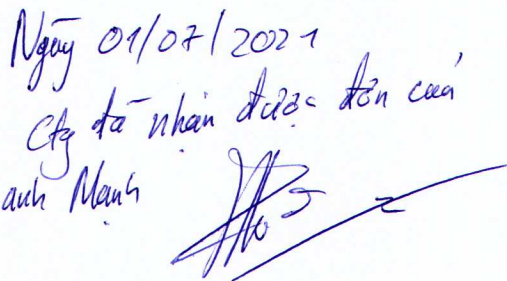 Ngày 01/07/2021
Cty đã nhận được đơn của
anh Mạnh